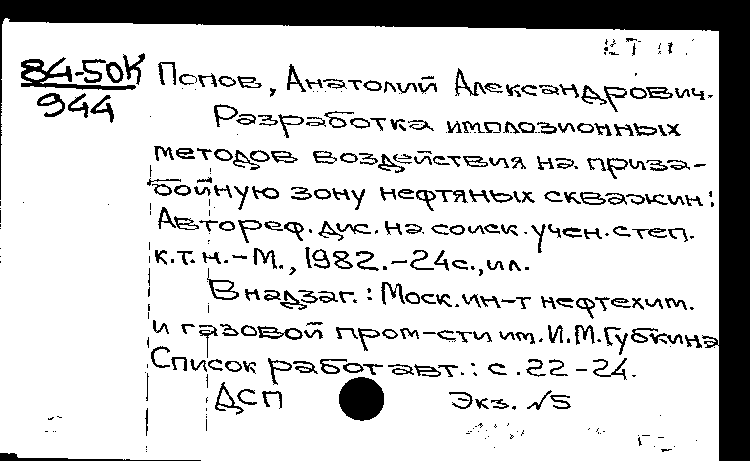 84-50К
944
Попов, Анатолий Александрович.
Разработка имплозионных
методов воздействия на приза-
бойную зону нефтяных скважин:
Автореф. дис. на соиск. учен. степ.
к.т.н. - М., 1982. - 24с., ил.
В надзаг.: Моск. ин-т нефтехим.
и газовой пром-сти им. И.М. Губкина
Список работ авт.: с. 22-24.
ДСП Экз. №5